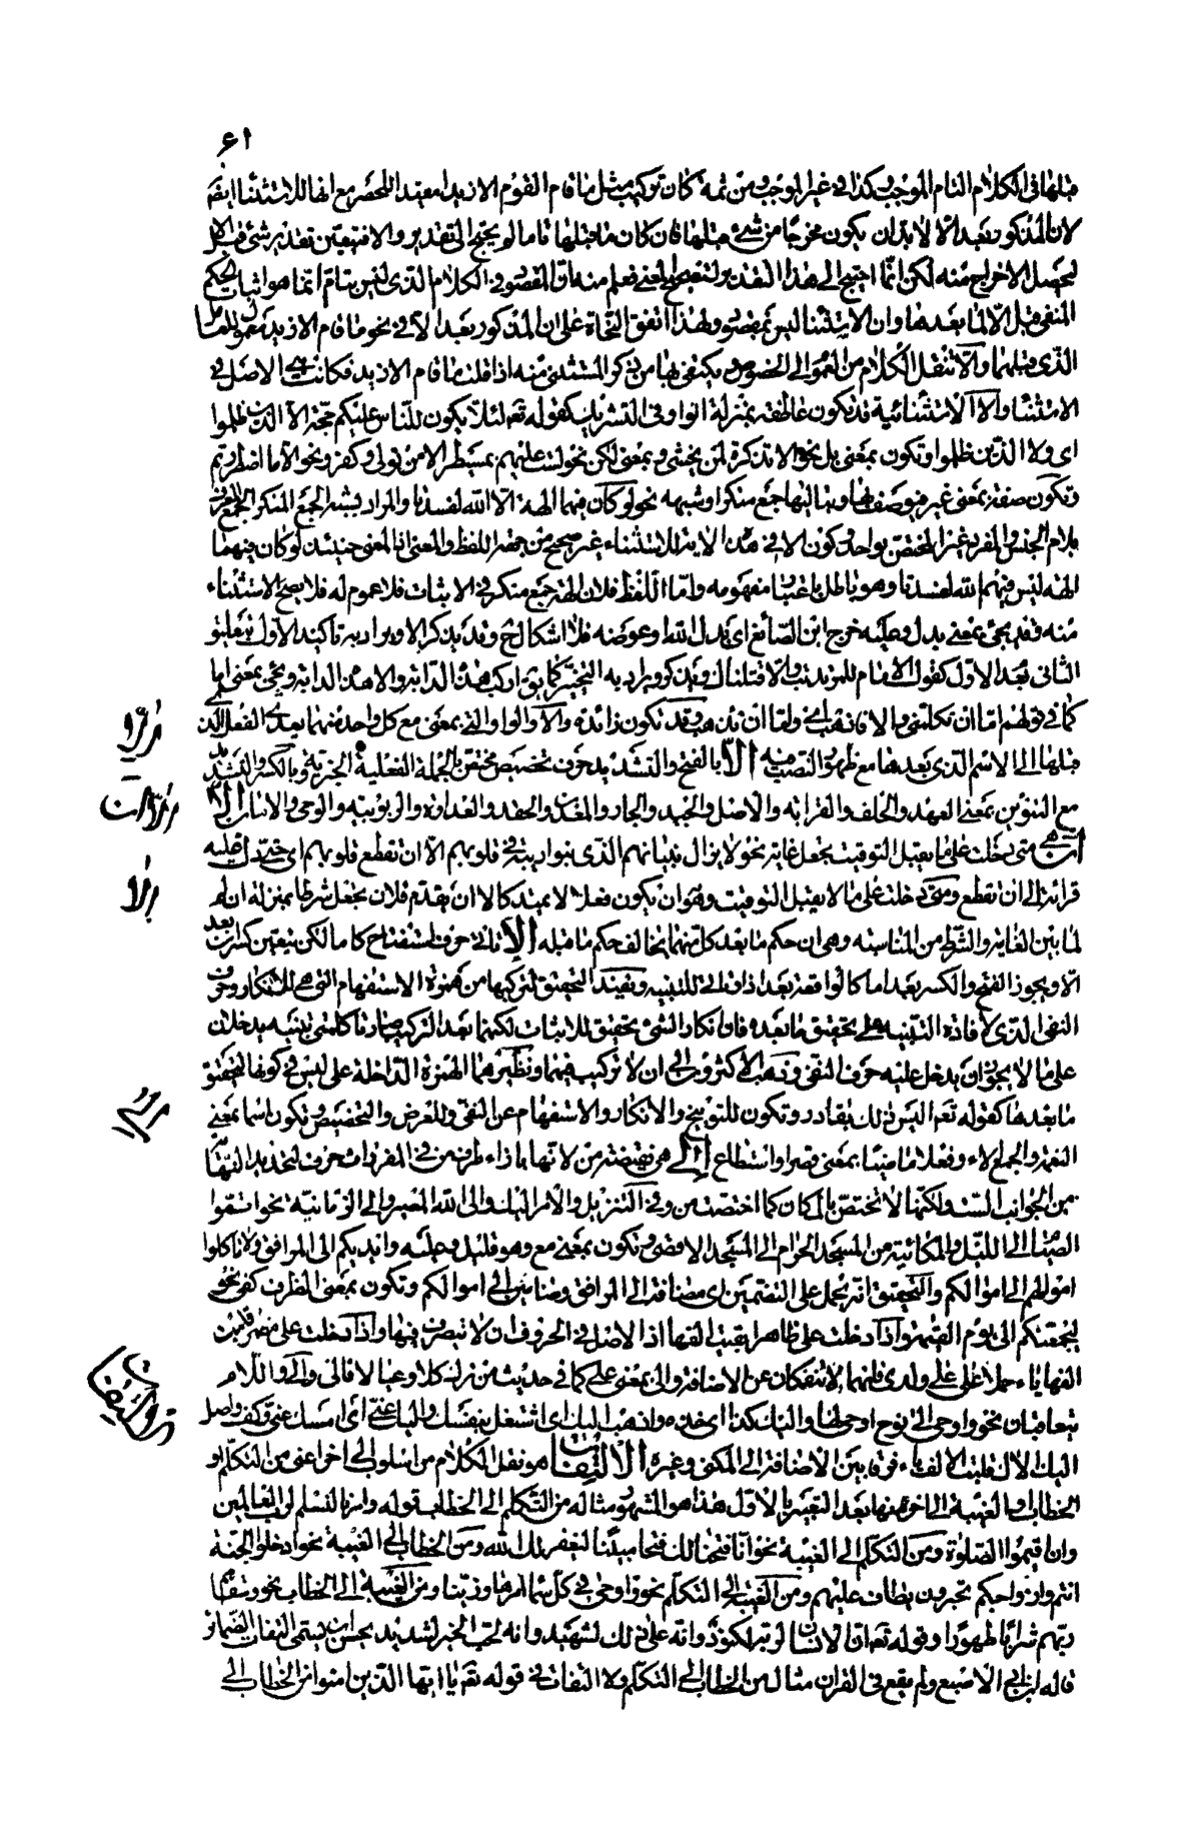 ٦١
قبلها في الكلام التام الموجب وكذا في غير الموجب ومن ثمة كان تركيب مثل ما قام القوم الا زيد امفيدا للحصر مع انها للاستثناء ايضا
لان المذكور بعد الا لا بد ان يكون مخرجا من شيء قبلها فان كان ما قبلها تاما لم يحتج الى تقدير والا فيتعين تقدير شيء قبل الا
ليحصل الاخراج منه لكن انما احتيج الى هذا التقدير لتصحيح المعنى فعلم منه ان المقصود في الكلام الذي ليس بتام انما هو اثبات الحكم
المنفي قبل الا لما بعدها وان الاستثناء ليس بمقصود ولهذا اتفق النحاة على ان المذكور بعد الا في نحو ما قام الا زيد معمول للعامل
الذي قبلها والا تنقل الكلام من العموم الى الخصوص ويكتفى بها من ذكر المستثنى منه اذا قلت ما قام الا زيد فكانت هي الاصل في
الاستثناء والا الاستثنائية قد تكون عاطفة بمنزلة الواو في التشريك كقوله تعم لئلا يكون للناس عليكم حجة الا الذين ظلموا
اي ولا الذين ظلموا وتكون بمعنى بل نحو الا تذكرة لمن يخشى وبمعنى لكن نحو لست عليهم بمسيطر الا من تولى وكفر ونحو الا ما اضطررتم
وتكون صفة بمعنى غير فيوصف بها وبتاليها جمع منكر او شبهه نحو لو كان فيهما الهة الا الله لفسدتا والمراد بشبه الجمع المنكر الجمع المعرف
بلام الجنس والمفرد غير المختص بواحد وكون الا في هذه الاية للاستثناء غير صحيح من جهة اللفظ والمعنى اذ المعنى حينئذ لو كان فيهما
الهة ليس فيهم الله لفسدتا وهو باطل باعتبار مفهومه واما اللفظ فلان الهة جمع منكر في الاثبات فلا عموم له فلا يصح الاستثناء
منه وقد يجيء بمعنى بدل وعليه خرج ابن الصائغ اي بدل الله او عوضه فلا اشكال ح وقد يذكر الا ويراد به تاكيد الاول بتعليق
الثاني بعد الاول كقول الامام للمرتد تب والا قتلناك وقد يذكر ويراد به التخيير كما يق اركب هذه الدابة والا هذه الدابة ويجيء بمعنى اما
كما في قولهم اما ان تكلمني والا فاذهب اي واما ان تذهب وقد تكون زائدة والا والواو التي بمعنى مع كل واحدة منهما يعدى الفعل الذي
قبلها الى الاسم الذي بعدها مع ظهور النصب فيه الا بالفتح والتشديد حرف تحضيض مختص بالجملة الفعلية الخبرية وبالكسر والتشديد
مع التنوين بمعنى العهد والحلف والقرابة والاصل والجيد والجار والمعدن والحقد والعداوة والربوبية والوحي والامان الا
ان هي متى دخلت على ما يقبل التوقيت يجعل غاية نحو لا يزال بنيانهم الذي بنوا ريبة في قلوبهم الا ان تقطع قلوبهم اي حتى بدليل قراءة
قراءة الى ان تقطع ومتى دخلت على ما لا يقبل التوقيت وهو ان يكون فعلا لا يمتد كالا ان يقدم فلان يجعل شرطا بمنزلة ان لم
لما بين الغاية والشرط من المناسبة وهي ان حكم ما بعد كل منهما يخالف حكم ما قبله الا تاتي حرف استفتاح كاما لكن يتعين كسر ان بعد
الا ويجوز الفتح والكسر بعد اما كالواقعة بعد اذا وتاتي للتنبيه وتفيد التحقيق لتركبها من همزة الاستفهام التي هي للانكار وحرف
النفي الذي لافادة التنبيه على تحقيق ما بعده فان انكار النفي تحقيق للاثبات لكنهما بعد التركيب صارتا كلمتي تنبيه يدخلان
على ما لا يجوز ان يدخل عليه حرف النفي وذهب الاكثرون الى ان لا تركيب فيهما ونظيرهما الهمزة الداخلة على ليس في كونها لتحقيق
ما بعدها كقوله تعم اليس ذلك بقادر وتكون للتوبيخ والانكار والاستفهام عن النفي وللعرض والتحضيض وتكون اسما بمعنى
النعمة والجمع الاء وفعلا ماضيا بمعنى قصر او استطاع الى هي نقيضة من لانها بازاء طرف من في المفردات حرف لتحديد النهاية
من الجوانب الست ولكنها لا تختص بالمكان كما اختصت من وفي التنزيل والامر اليك والى الله المصير والى الزمانية نحو اتموا
الصيام الى الليل والمكانية من المسجد الحرام الى المسجد الاقصى وتكون بمعنى مع وهو قليل وعليه وايديكم الى المرافق ولا تاكلوا
اموالهم الى اموالكم والتحقيق انه يحمل على التضمين اي مضافة الى المرافق وضامين الى اموالكم وتكون بمعنى الظرف كفي نحو
ليجمعنكم الى يوم القيمة واذا دخلت على ظاهر ابقيت الفها اذ الاصل في الحروف ان لا يتصرف فيها واذا دخلت على مضمر قلبت
الفها ياء حملا على على ولدى فانهما لا تنفكان عن الاضافة والى بمعنى على كما في حديث من ترك كلا وعيالا فالي والى واللام
يتعاقبان نحو واوحي الى نوح اوحى لها واليك كذا اي خذه واذهب اليك اي اشتغل بنفسك واليك عني اي امسك عني وكف واصل
اليك الاك قلبت الالف ياء فرقا بين الاضافة الى المكنى وغيره الالتفات هو نقل الكلام من اسلوب الى اخر اعني من التكلم او
الخطاب او الغيبة الى اخر منها بعد التعبير بالاول هذا هو المشهور مثاله من التكلم الى الخطاب قوله وامرنا لنسلم لرب العالمين
وان اقيموا الصلوة ومن التكلم الى الغيبة نحو انا فتحنا لك فتحا مبينا ليغفر لك الله ومن الخطاب الى الغيبة نحو ادخلوا الجنة
انتم وازواجكم تحبرون يطاف عليهم ومن الغيبة الى التكلم نحو واوحى في كل سماء امرها وزينا ومن الغيبة الى الخطاب نحو وسقاهم
ربهم شرابا طهورا وقوله تعم ان الانسان لربه لكنود وانه على ذلك لشهيد وانه لحب الخير لشديد يحسن ان يسمى التفات الضمائر
قاله ابن ابي الاصبع ولم يقع في القران مثال من الخطاب الى التكلم ولا التفات في قوله تعم يا ايها الذين امنوا من الخطاب الى